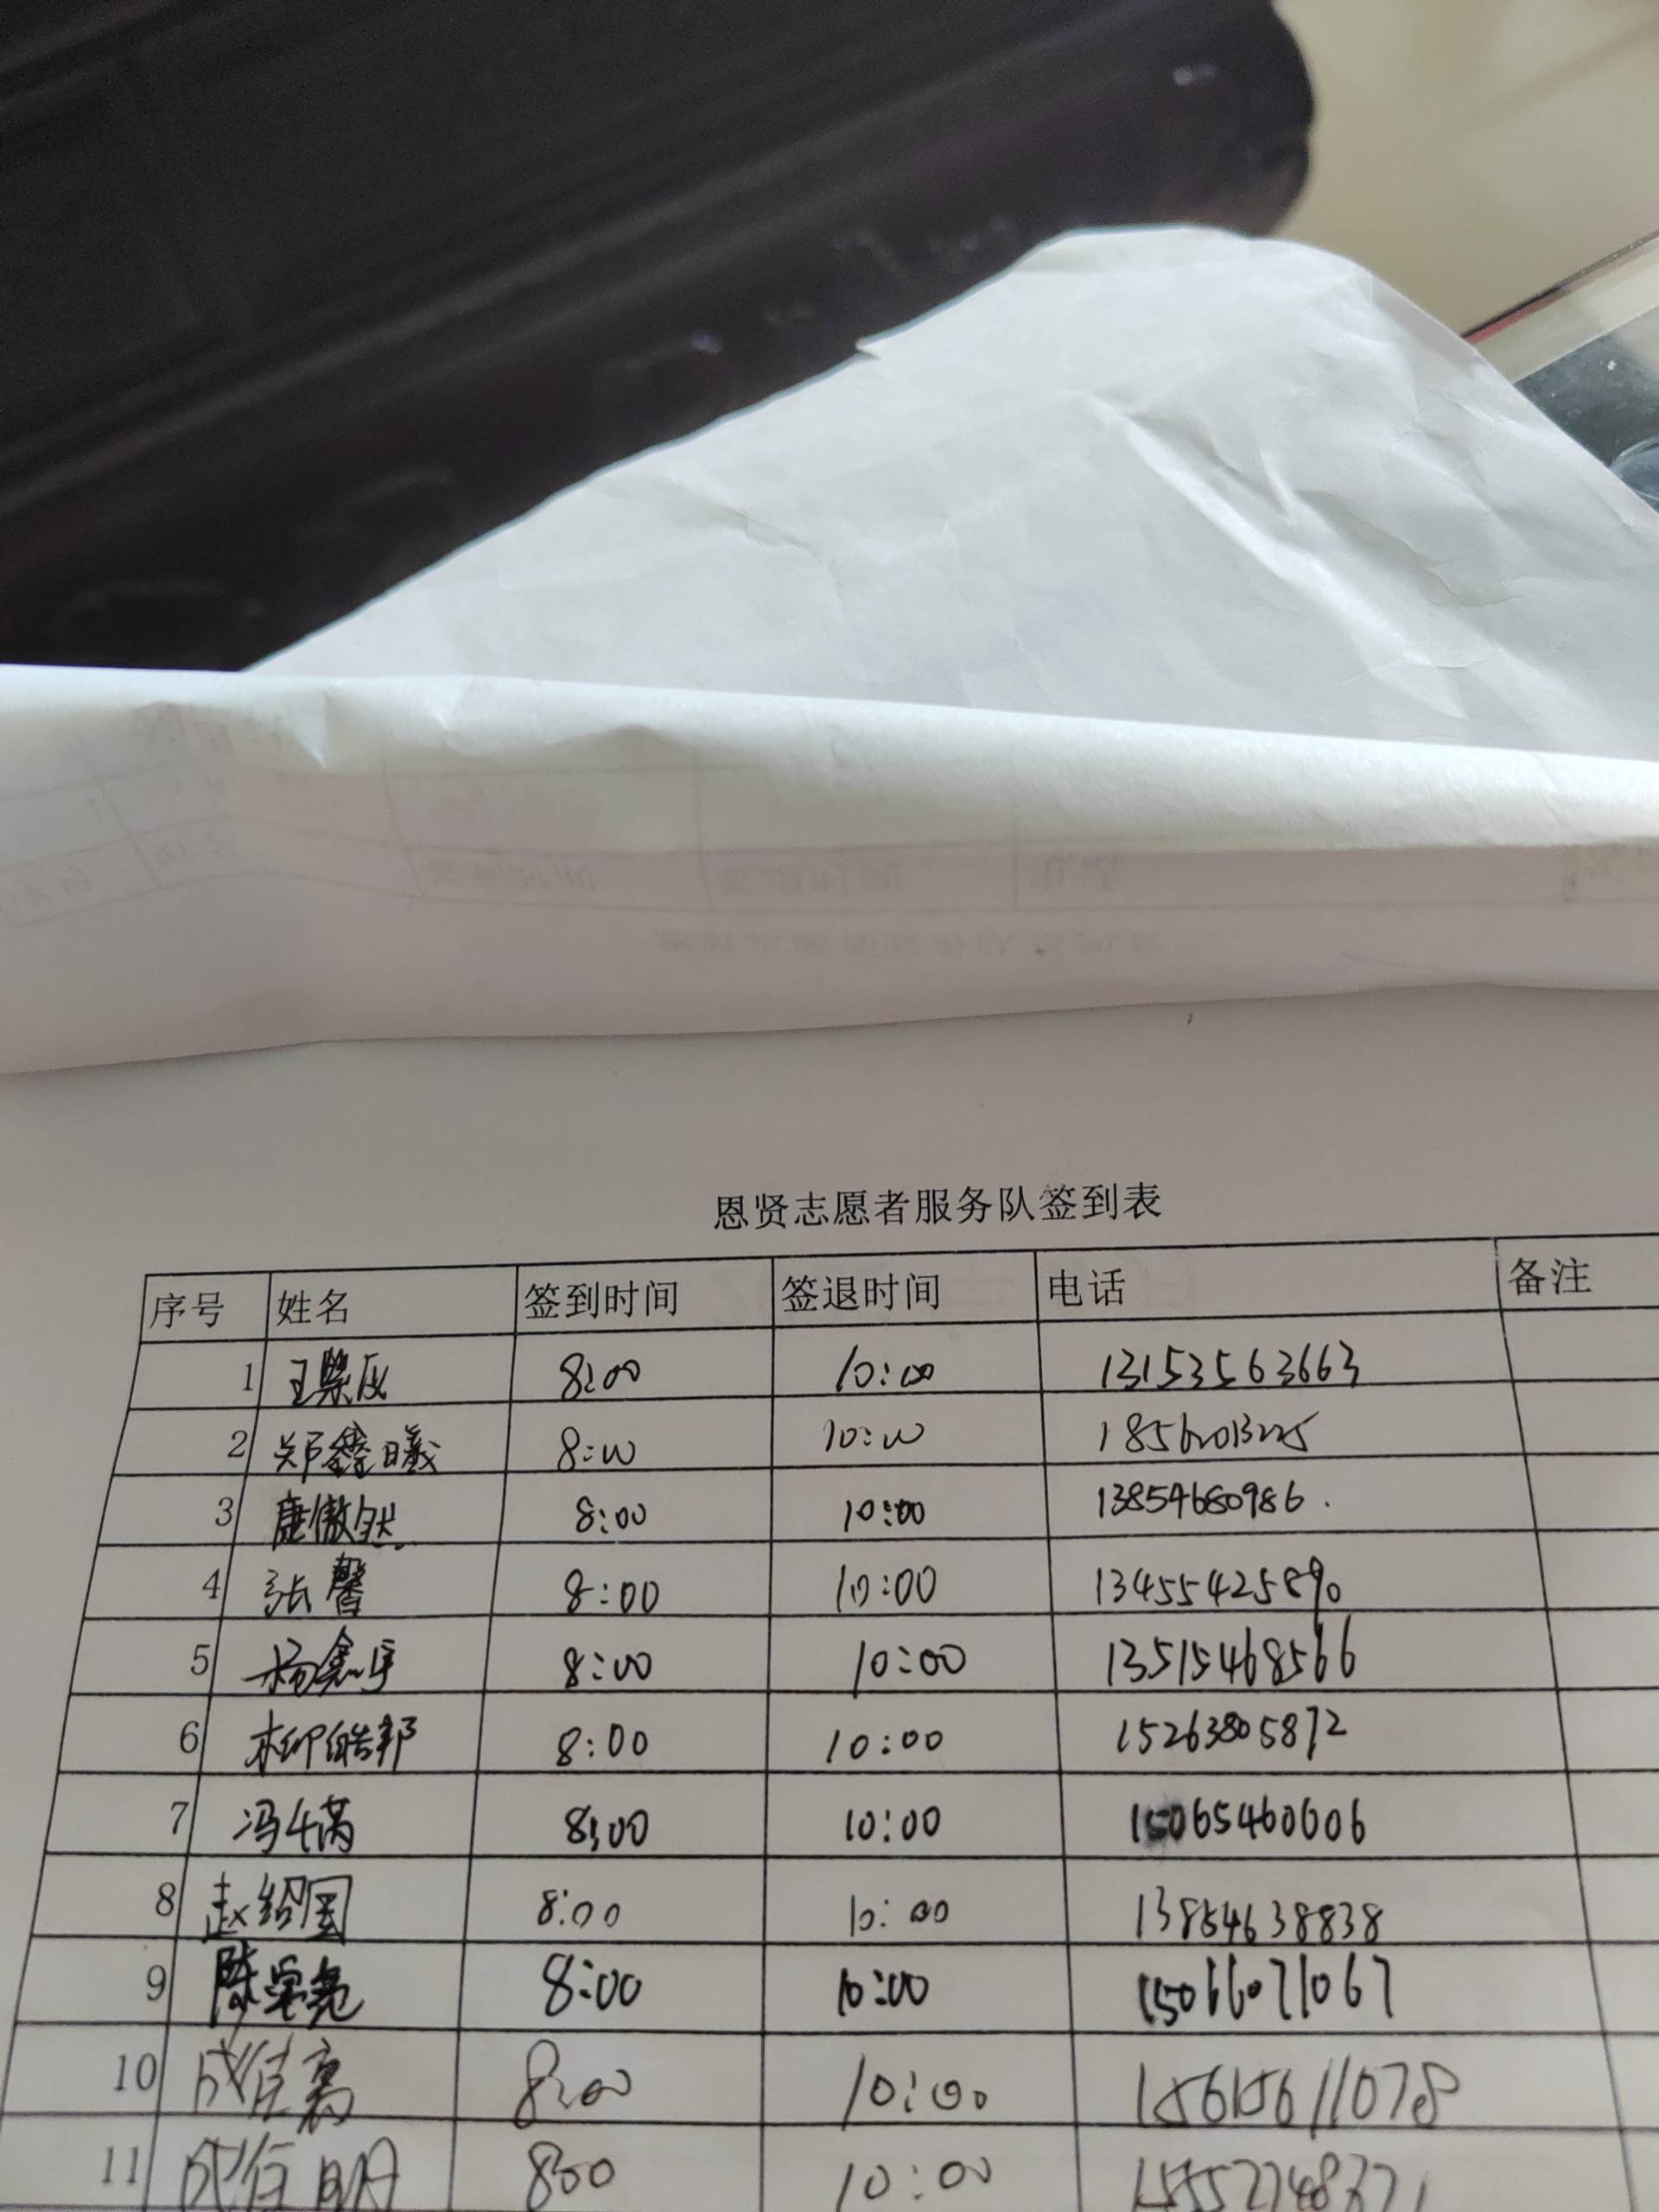 恩贤志愿者服务队签到表
序号 姓名 签到时间 签退时间 电话 备注
1 8:00 10:00 13153563663
2 郑鑫曦 8:00 10:00
3 唐傲然 8:00 10:00 13854680986.
4 张馨 8:00 10:00 13455425890
5 杨鑫宇 8:00 10:00 13515468566
6 柳皓邦 8:00 10:00 15263805872
7 冯千芮 8:00 10:00 15065460606
8 赵绍国 8:00 10:00 13854638838
9 陈学亮 8:00 10:00 15066071067
10 8:00 10:00 15615611078
11 800 10:00